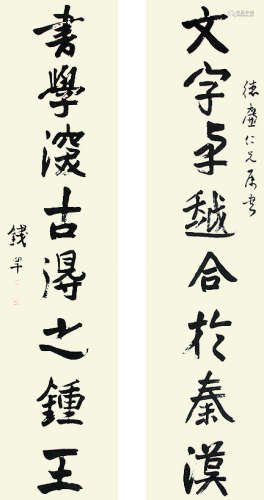 德盦仁兄屬書
文字卓越合於秦漢
書學深古得之鍾王
錢